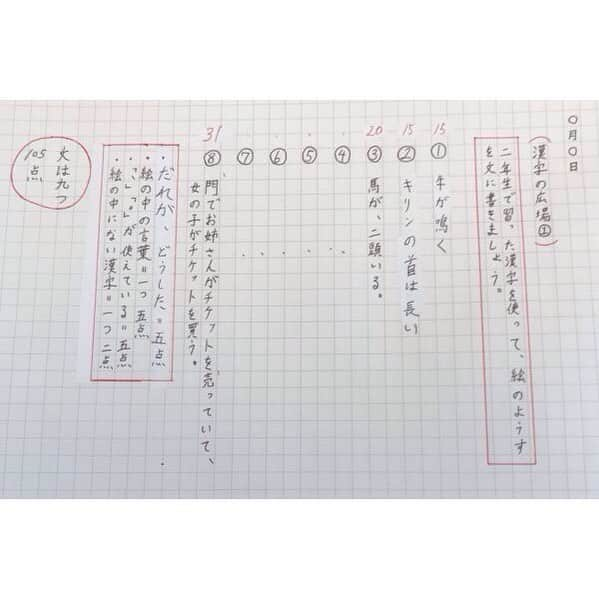 〇月〇日
(漢字の広場①)
二年生で習った漢字を使って、絵のようす
を文に書きましょう。
15
① 牛が鳴く
15
② キリンの首は長い
20
③ 馬が、二頭いる。
④
⑤
⑥
⑦
31
⑧ 門でお姉さんがチケットを売っていて、
女の子がチケットを買う。
・だれが、どうした。=五点
・絵の中の言葉=一つ 五点
・「、」「。」が使えている=五点
・絵の中にない漢字=一つ 二点
火は九つ
105点